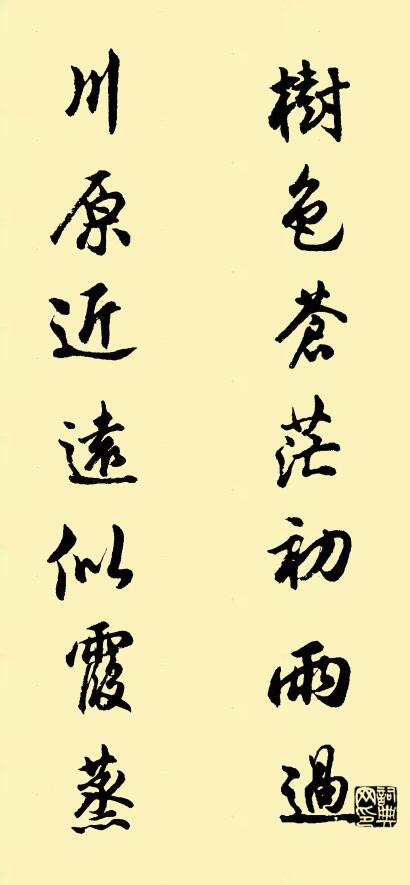 樹色蒼茫初雨過
川原近遠似霞蒸
詞典网印